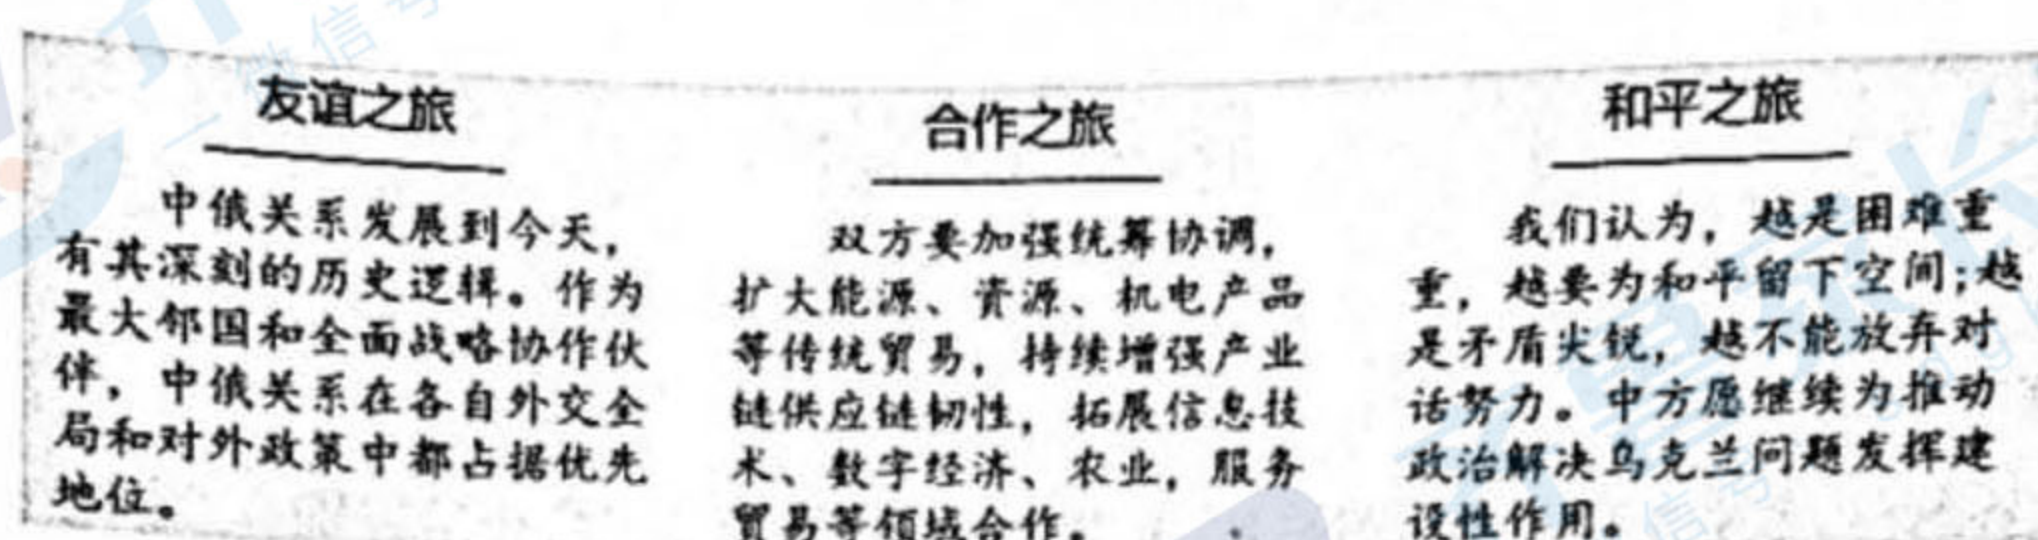 友谊之旅
中俄关系发展到今天，
有其深刻的历史逻辑。作为
最大邻国和全面战略协作伙
伴，中俄关系在各自外交全
局和对外政策中都占据优先
地位。
合作之旅
双方要加强统筹协调，
扩大能源、资源、机电产品
等传统贸易，持续增强产业
链供应链韧性，拓展信息技
术、数字经济、农业，服务
贸易等领域合作。
和平之旅
我们认为，越是困难重
重，越要为和平留下空间；越
是矛盾尖锐，越不能放弃对
话努力。中方愿继续为推动
政治解决乌克兰问题发挥建
设性作用。
微信
信